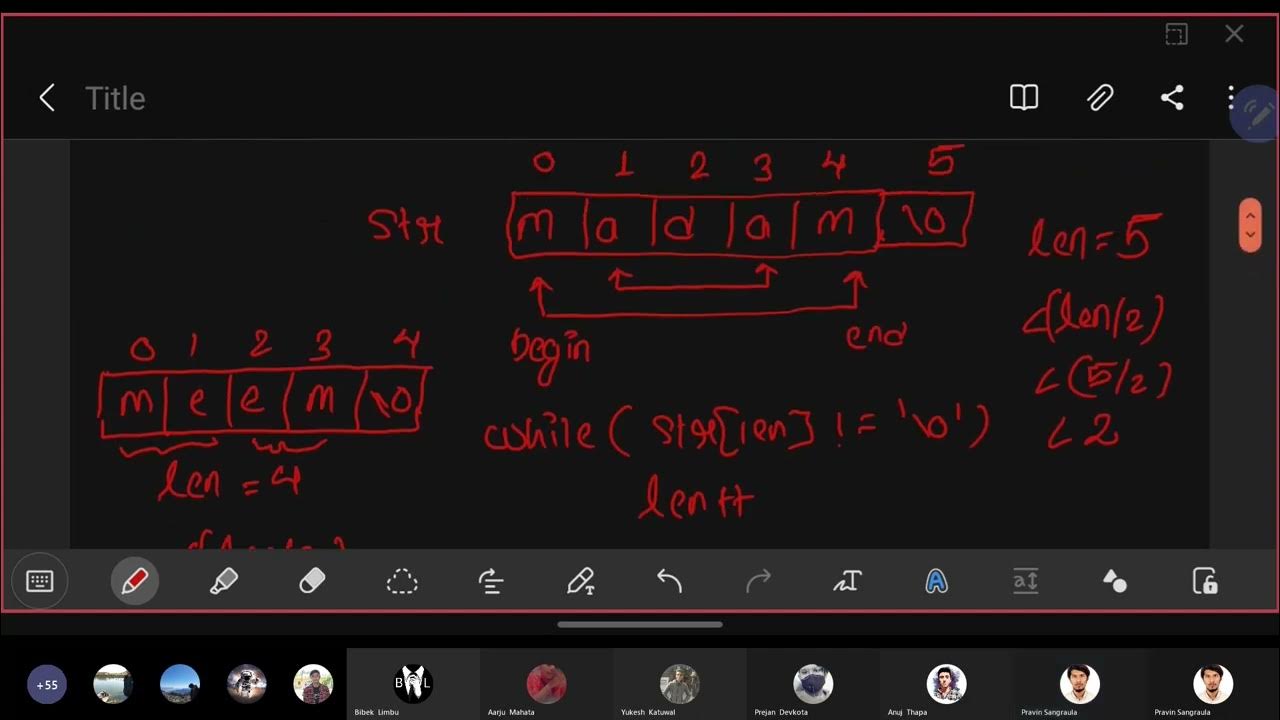 Title
0 1 2 3 4 5
str m a d a m \0
len = 5
<(len/2)
<(5/2)
<2
begin end
0 1 2 3 4
m e e m \0
len = 4
while ( str[len] != '\0' )
len++
+55
Bibek Limbu
Aarju Mahata
Yukesh Katuwal
Prejan Devkota
Anuj Thapa
Pravin Sangraula
Pravin Sangraula